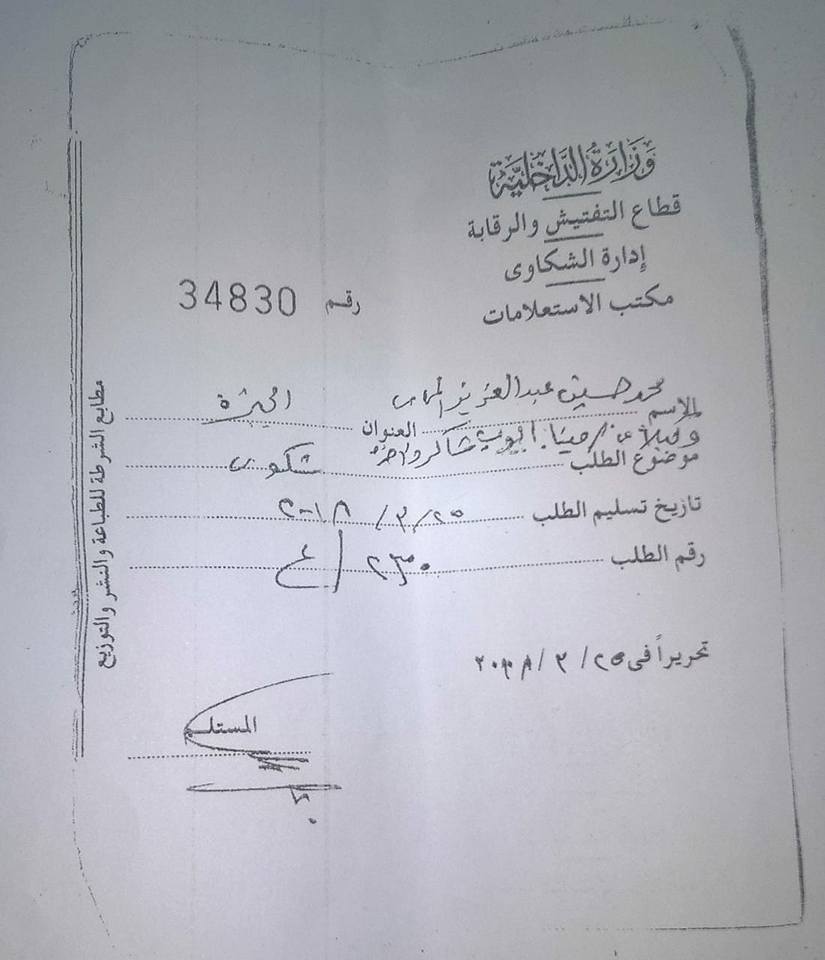 وزارة الداخلية
قطاع التفتيش والرقابة
إدارة الشكاوى
مكتب الاستعلامات
رقم 34830
الاسم محمد حسين عبد العزيز العنوان الجيزة
وكيلا عن / مينا ايوب شاكر
موضوع الطلب شكوى
تاريخ تسليم الطلب ٢٥/٣/٢٠١٨
رقم الطلب ٢٣٠/ع
تحريراً فى ٢٥/٣/٢٠١٨
المستلم
مطابع الشرطة للطباعة والنشر والتوزيع